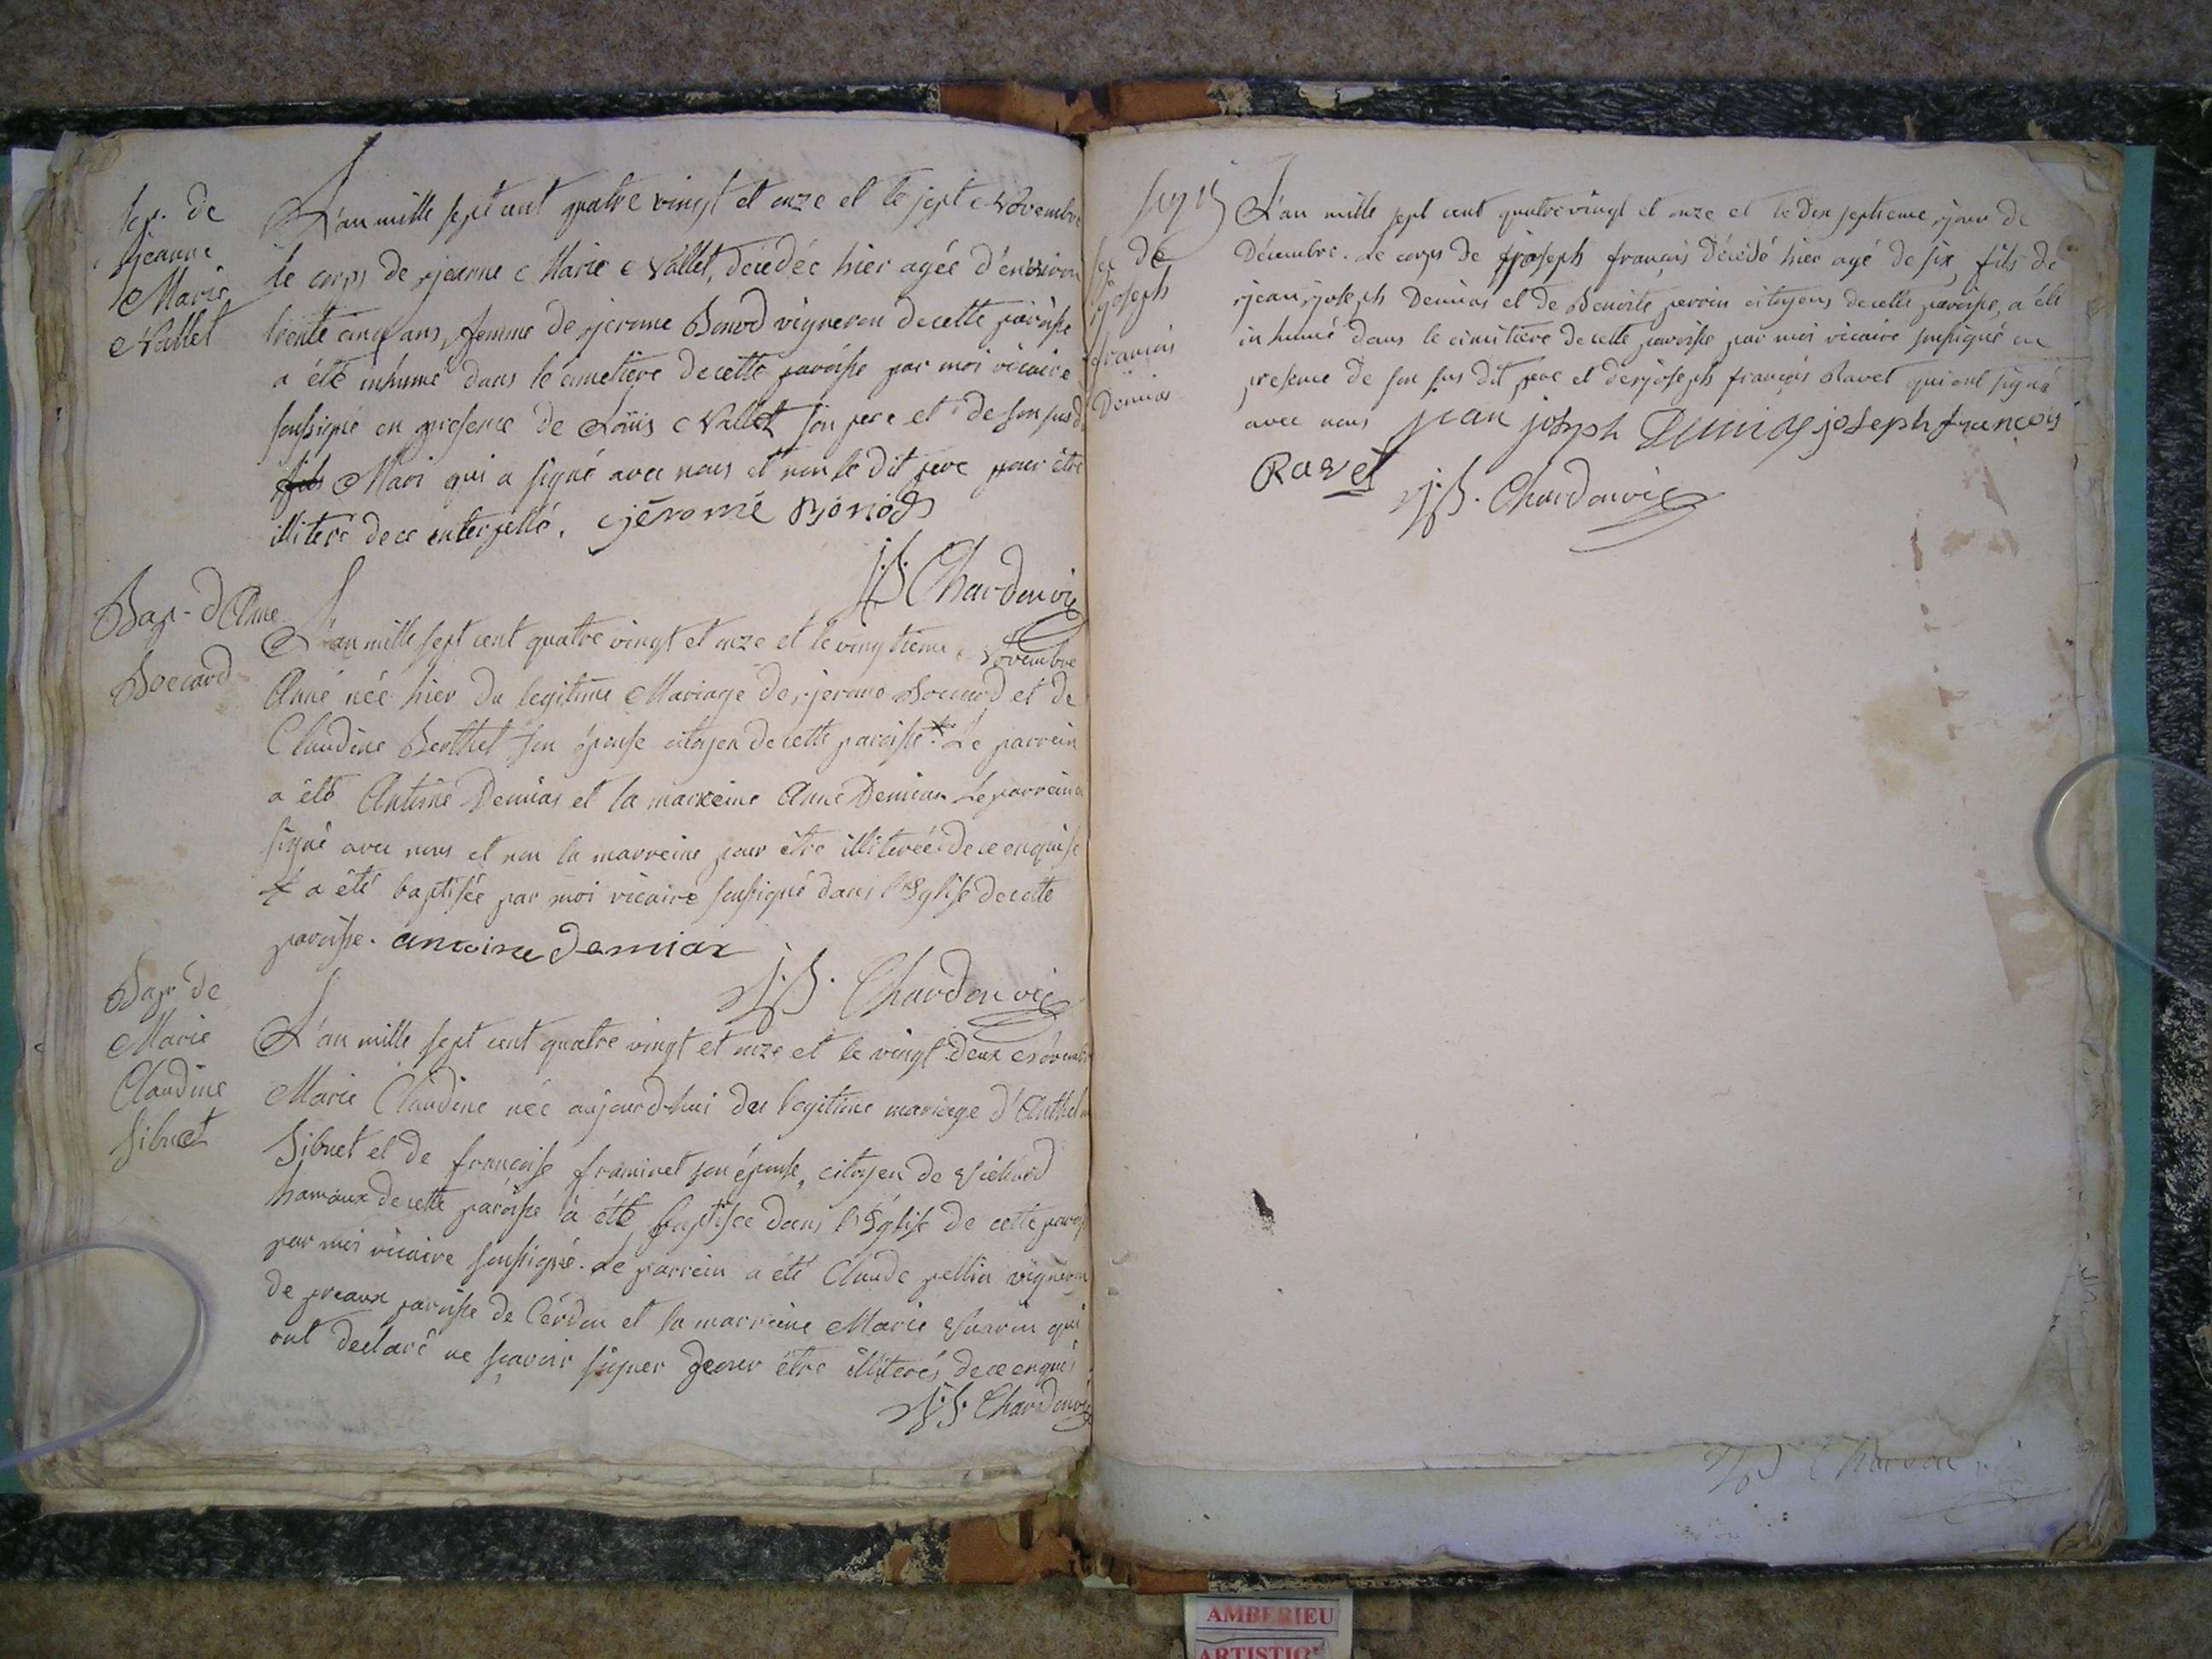 Sep. de
jeanne
Marie
Vallet
L'an mille sept cent quatre vingt et onze et le sept Novembre
le corps de jeanne Marie Vallet, décédée hier agée d'environ
trente cinq ans, femme de jerome Bonod vigneron de cette paroisse
a été inhumé dans le cimetière de cette paroisse par moi vicaire
soussigné en presence de Loüis Vallet son pere et de son susd.
fils Mari qui a signé avec nous et non le dit pere pour être
illiteré de ce enterpellé. jéromé Bonod
J.B. Chardon vic
Bap- d'Anne
Boccard
L'an mille sept cent quatre vingt et onze et le vingtieme Novembre
Anne née hier du legitime Mariage de jerome Boccard et de
Claudine Berthet son épouse citoyen de cette paroisse.* Le parrein
a été Antoine Demias et la marreine Anne Demias Le parrein a
signé avec nous et non la marreine pour être illiterée de ce enquise
* a été baptisée par moi vicaire soussigné dans l'Eglise de cette
paroisse. antoine demiax
J.B. Chardon vic
Bap. de
Marie
Claudine
Sibuet
L'an mille sept cent quatre vingt et onze et le vingt deux Novembre
Marie Claudine née aujourd-hui du legitime mariage d'Anthelm
Sibuet et de françoise framinet son épouse, citoyen de
hamaux de cette paroisse à été baptisée dans l'Eglise de cette parois
par moi vicaire soussigné. Le parrein a été Claude pellin vigneron
de preaux paroisse de Cerdon et la marreine Marie qui
ont declaré ne sçavoir signer pour être illiterés de ce enqués
J.B. Chardon vic
sep de
joseph
françois
Demias
L'an mille sept cent quatre vingt et onze et le dix septieme jour de
Décembre. Le corps de joseph françois décédé hier agé de six, fils de
jean joseph Demias et de Benoite perrin citoyens de cette paroisse, a été
inhumé dans le cimitiere de cette paroisse par moi vicaire soussigné en
presence de son sus dit pere et de joseph françois Ravet qui ont signé
avec nous jean joseph Dumias joseph francois
Ravet J.B. Chardon vic
AMBERIEU